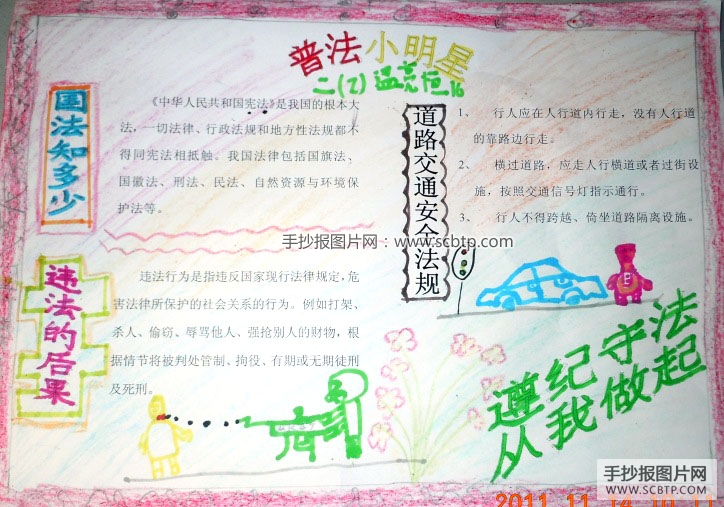 普法小明星
二(2)温亮恒16
国法知多少
《中华人民共和国宪法》是我国的根本大
法，一切法律、行政法规和地方性法规都不
得同宪法相抵触。我国法律包括国旗法、
国徽法、刑法、民法、自然资源与环境保
护法等。
道路交通安全法规
1、 行人应在人行道内行走，没有人行道
的靠路边行走。
2、 横过道路，应走人行横道或者过街设
施，按照交通信号灯指示通行。
3、 行人不得跨越、倚坐道路隔离设施。
手抄报图片网：www.scbtp.com
违法的后果
违法行为是指违反国家现行法律规定，危
害法律所保护的社会关系的行为。例如打架、
杀人、偷窃、辱骂他人、强抢别人的财物，根
据情节将被判处管制、拘役、有期或无期徒刑
及死刑。
遵纪守法
从我做起
手抄报图片网
WWW.SCBTP.COM
2011.11